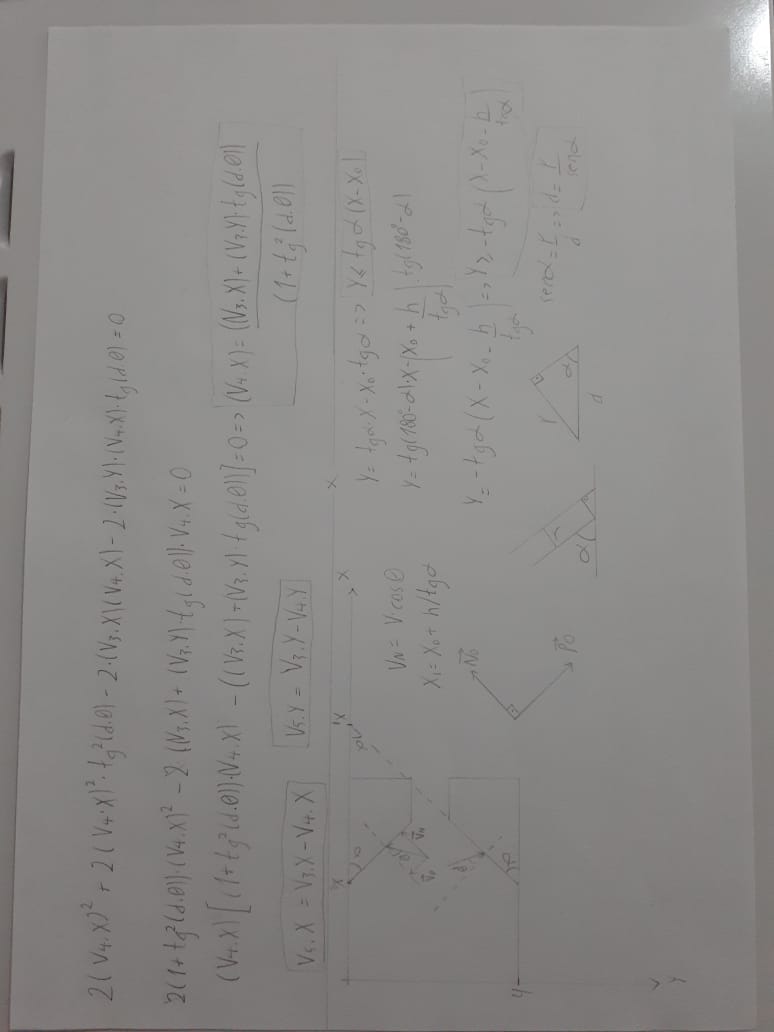 2(V₄.X)² + 2(V₄.X)².tg²(d.θ) - 2.(V₃.X)(V₄.X) - 2.(V₃.Y).(V₄.X).tg(d.θ) = 0
2(1+tg²(d.θ)).(V₄.X)² - 2.((V₃.X)+(V₃.Y).tg(d.θ)).V₄.X = 0
(V₄.X)[(1+tg²(d.θ)).(V₄.X) - ((V₃.X)+(V₃.Y).tg(d.θ))] = 0 => (V₄.X) = ((V₃.X)+(V₃.Y).tg(d.θ))
(1+tg²(d.θ))
V₅.X = V₃.X - V₄.X
V₅.Y = V₃.Y - V₄.Y
X
X
X
X
α
α
θ
Vₙ
Vₙ = V.cosθ
X₁ = X₀ + h/tgα
Y = tgα.X - X₀.tgα => Y ≤ tgα(X-X₀)
Y = tg(180°-α).X - (X₀ + h/tgα).tg(180°-α)
Y = -tgα(X - X₀ - h/tgα) => Y ≥ -tgα(X - X₀ - h/tgα)
θ
α
Y
N₀
P₀
α
r
α
d
senα = r/d => d = r/senα
Y